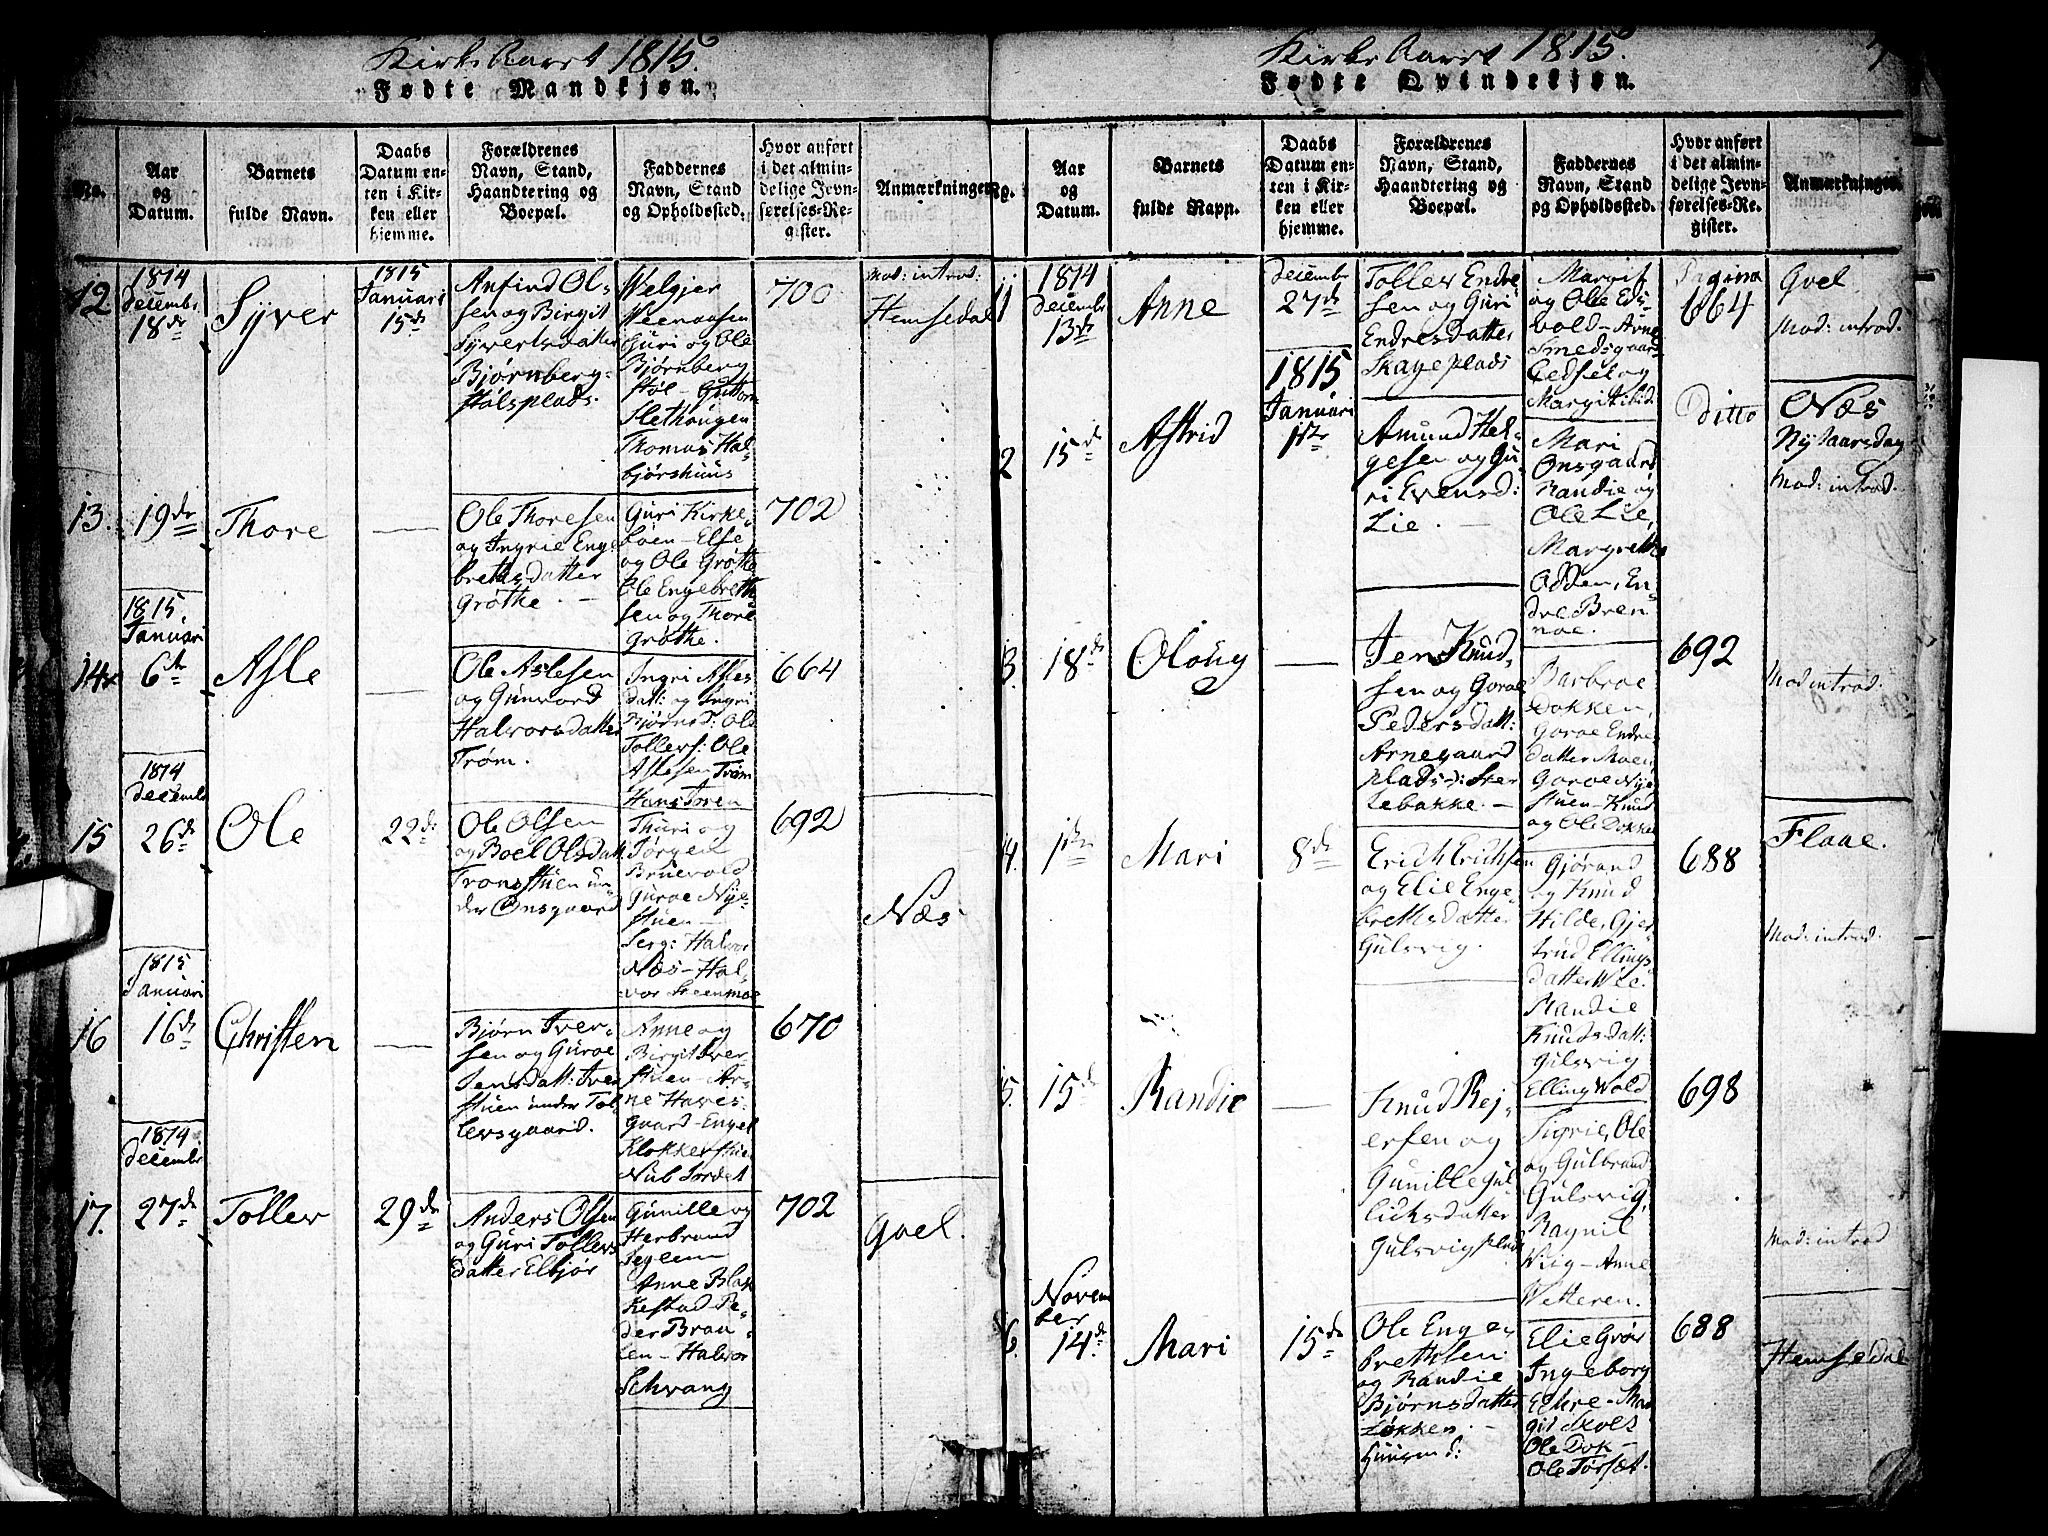 Kirke Aaret 1815.
Fødte Mandkjøn.
No.
Aar
og
Datum.
Barnets
fulde Navn.
Daabs
Datum en-
ten i Kir-
ken eller
hjemme.
Forældrenes
Navn, Stand,
Haandtering og
Boepæl.
Faddernes
Navn, Stand
og Opholdssted.
Hvor anført
i det almin-
delige Jevn-
førelses-Re-
gister.
Anmærkninger.
12
1814
Decembr
18de
Syver
1815
Januari
15de
Anfind Ol-
sen og Birgit
Syvertsdatter
Bjørnberg-
støls plads.
Guri og Ole
Bjørnberg
støl - Guttorm
Slethougen
Thomas Hal-
bjørshuus
700
Mod: introd:
Hemsedal
13.
19de
Thore
Ole Thoresen
og Ingrie Enge
brethsdatter
Grøthe.
Guri Kirke-
bøen - Else
og Ole Grøthe
Ole Engebreth
sen og Thore
Grøthe.
702
14
1815.
Januari
6te
Asle
Ole Aslesen
og Gunvord
Halvorsdatter
Trøm.
Ingri Asles
datt: og Ingri
Bjørnsd: Ole
Tollefs: Ole
Aslesen Trøm
Hans Toren
664
15
1814
Decembr
26de
Ole
22de
Ole Olsen
og Boel Olsdatt
Transstuen un-
der Onsgaard
Thuri og
Jørgen
Bruevold
Guroe Nye-
stuen -
Serg: Halvor
Næs - Hal-
vor Steenmoe
692
Næs
16
1815
Januari
16de
Christen
Bjørn Iver-
sen og Guroe
Jensdatt: Iver
stuen under Tol
lefsgaard.
Anne og
Birgit Iver-
stuen - Ar-
ne Haves-
gaard - Engel
Klokkerstuen
Nub Jordet
670
17.
1814
Decembr
27de
Tollev
29de
Anders Olsen
og Guri Tollevs
datter Elbjør
Gunille og
Herbrand
Seglem
Anne Blak
kestad - Pe-
der Brau-
ten - Halvor
Schvang
702
Goel.
Kirke Aaret 1815.
Fødte Qvindekjøn.
No.
Aar
og
Datum.
Barnets
fulde Navn.
Daabs
Datum en-
ten i Kir-
ken eller
hjemme.
Forældrenes
Navn, Stand,
Haandtering og
Boepæl.
Faddernes
Navn, Stand
og Opholdssted.
Hvor anført
i det almin-
delige Jevn-
førelses-Re-
gister.
Anmærkninger.
1
1814
Decembr
13de
Anne
Decembr
27de
Tollev Endre
sen og Guri
Endresdatter
Skage plads
Margit
og Ole Eds-
vold - Arne
Smedsgaard
Margit ibid:
Pagina
664
Goel
Mod: introd.
2
15de
Astrid
1815
Januari
1ste
Amund Hel-
gesen og Gu-
ri Evensd:
Lie.
Mari
Onsgaard
Randie og
Ole Lie,
Margrethe
Odden, En-
dre Bren-
noe.
Ditto
Næs
Nyt aarsdag
Mod: introd.
3.
18de
Oloug
Jen Knud-
sen og Goroe
Pedersdatt:
Arnegaard
plads
Barbroe
Dokken,
Goroe Endre
datter Moen
Goroe Nye
stuen - Knud
og Ole Dokken
692
Mod introd.
4.
1ste
Mari
8de
Erich Erichsen
og Elie Enge-
brethsdatter
Gulsvig.
Gjørand
og Knud
Hilde, Gjer-
trud Ellings
datter Wee.
Randie
Knudsdatt:
Gulsvig
Elling Wold
688
Flaae.
Mod: introd.
5.
15de
Randie
Knud Rej-
ersen og
Gunille Gul-
lichsdatter
Gulsvig plads
Sigrie, Ole
og Gulbrand
Gulsvig,
Ragnil
Wiig - Anne
Wetteren.
698
Mod: introd
6.
Novem
ber
14de
Mari
15de
Ole Enge-
brethsen
og Randie
Bjørnsdatter
Løkken.
Huusmd:
Elie Grøv
Ingeborg
Eghre - Mar
git Skoes
Ole Dok-
Ole Torset.
688
Hemsedal